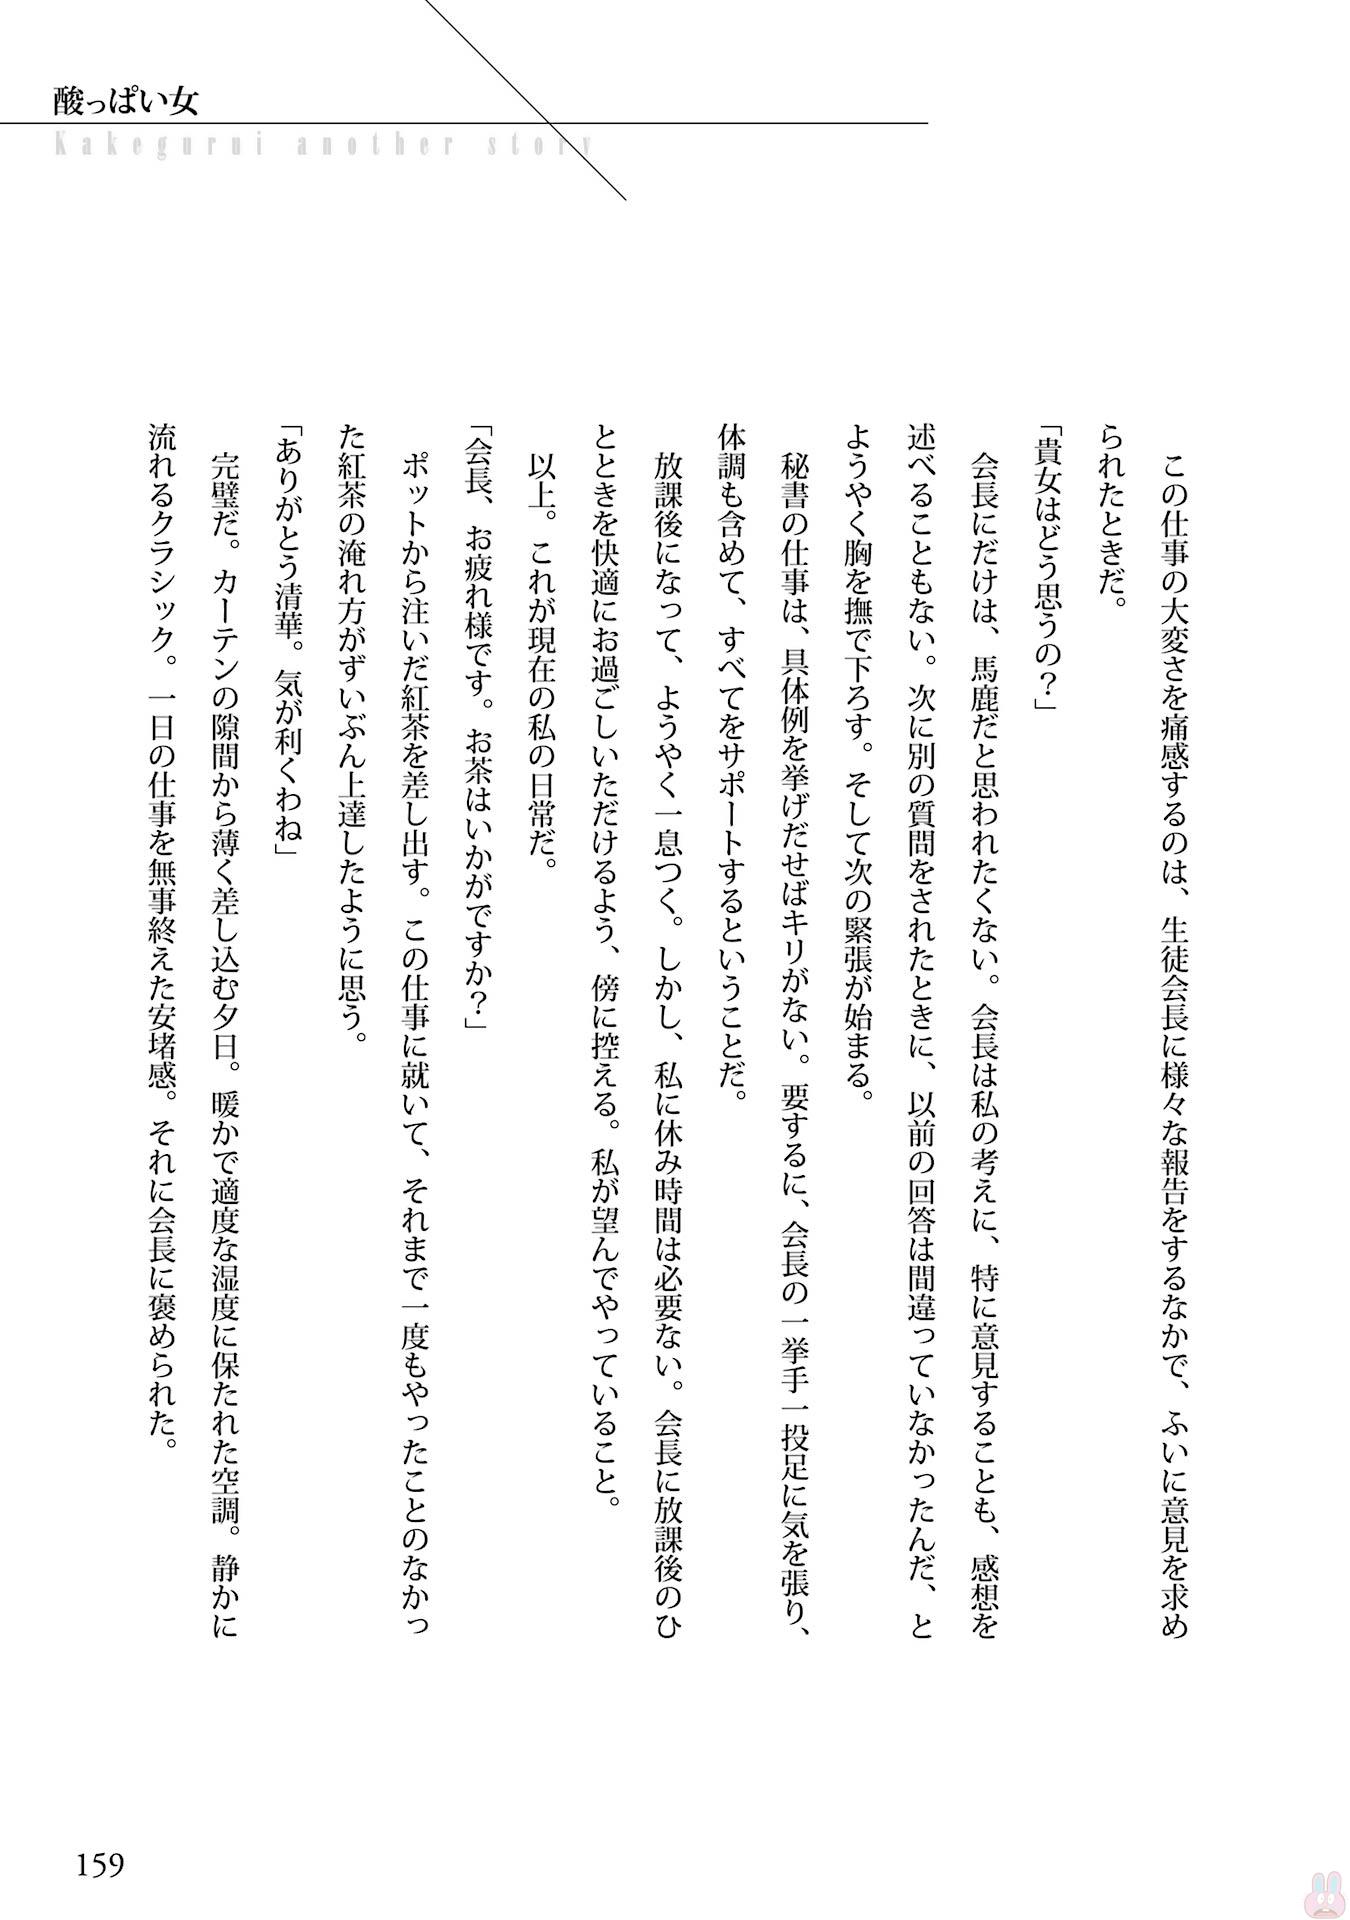 酸っぱい女
Kakegurui another story
この仕事の大変さを痛感するのは、生徒会長に様々な報告をするなかで、ふいに意見を求め
られたときだ。
「貴女はどう思うの？」
会長にだけは、馬鹿だと思われたくない。会長は私の考えに、特に意見することも、感想を
述べることもない。次に別の質問をされたときに、以前の回答は間違っていなかったんだ、と
ようやく胸を撫で下ろす。そして次の緊張が始まる。
秘書の仕事は、具体例を挙げだせばキリがない。要するに、会長の一挙手一投足に気を張り、
体調も含めて、すべてをサポートするということだ。
放課後になって、ようやく一息つく。しかし、私に休み時間は必要ない。会長に放課後のひ
とときを快適にお過ごしいただけるよう、傍に控える。私が望んでやっていること。
以上。これが現在の私の日常だ。
「会長、お疲れ様です。お茶はいかがですか？」
ポットから注いだ紅茶を差し出す。この仕事に就いて、それまで一度もやったことのなかっ
た紅茶の淹れ方がずいぶん上達したように思う。
「ありがとう清華。気が利くわね」
完璧だ。カーテンの隙間から薄く差し込む夕日。暖かで適度な湿度に保たれた空調。静かに
流れるクラシック。一日の仕事を無事終えた安堵感。それに会長に褒められた。
159